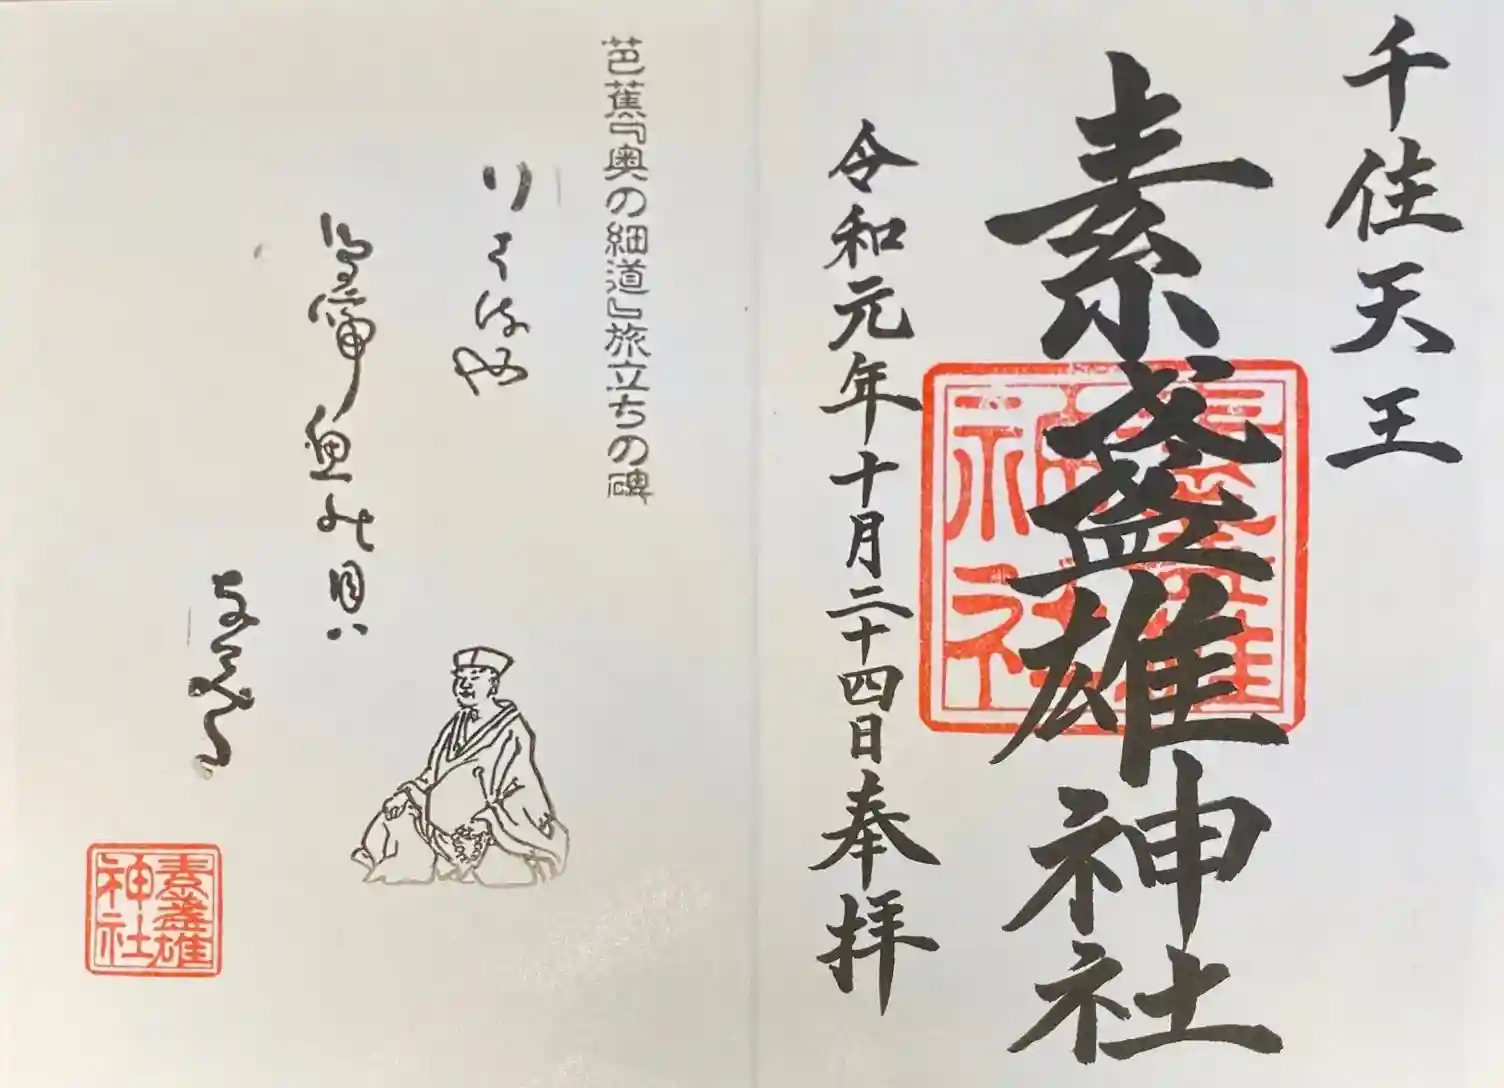 千住天王
素盞雄神社
令和元年十月二十四日奉拝
素盞雄
神社
芭蕉『奥の細道』旅立ちの碑
行はるや
鳥啼魚の目ハ
素盞雄
神社